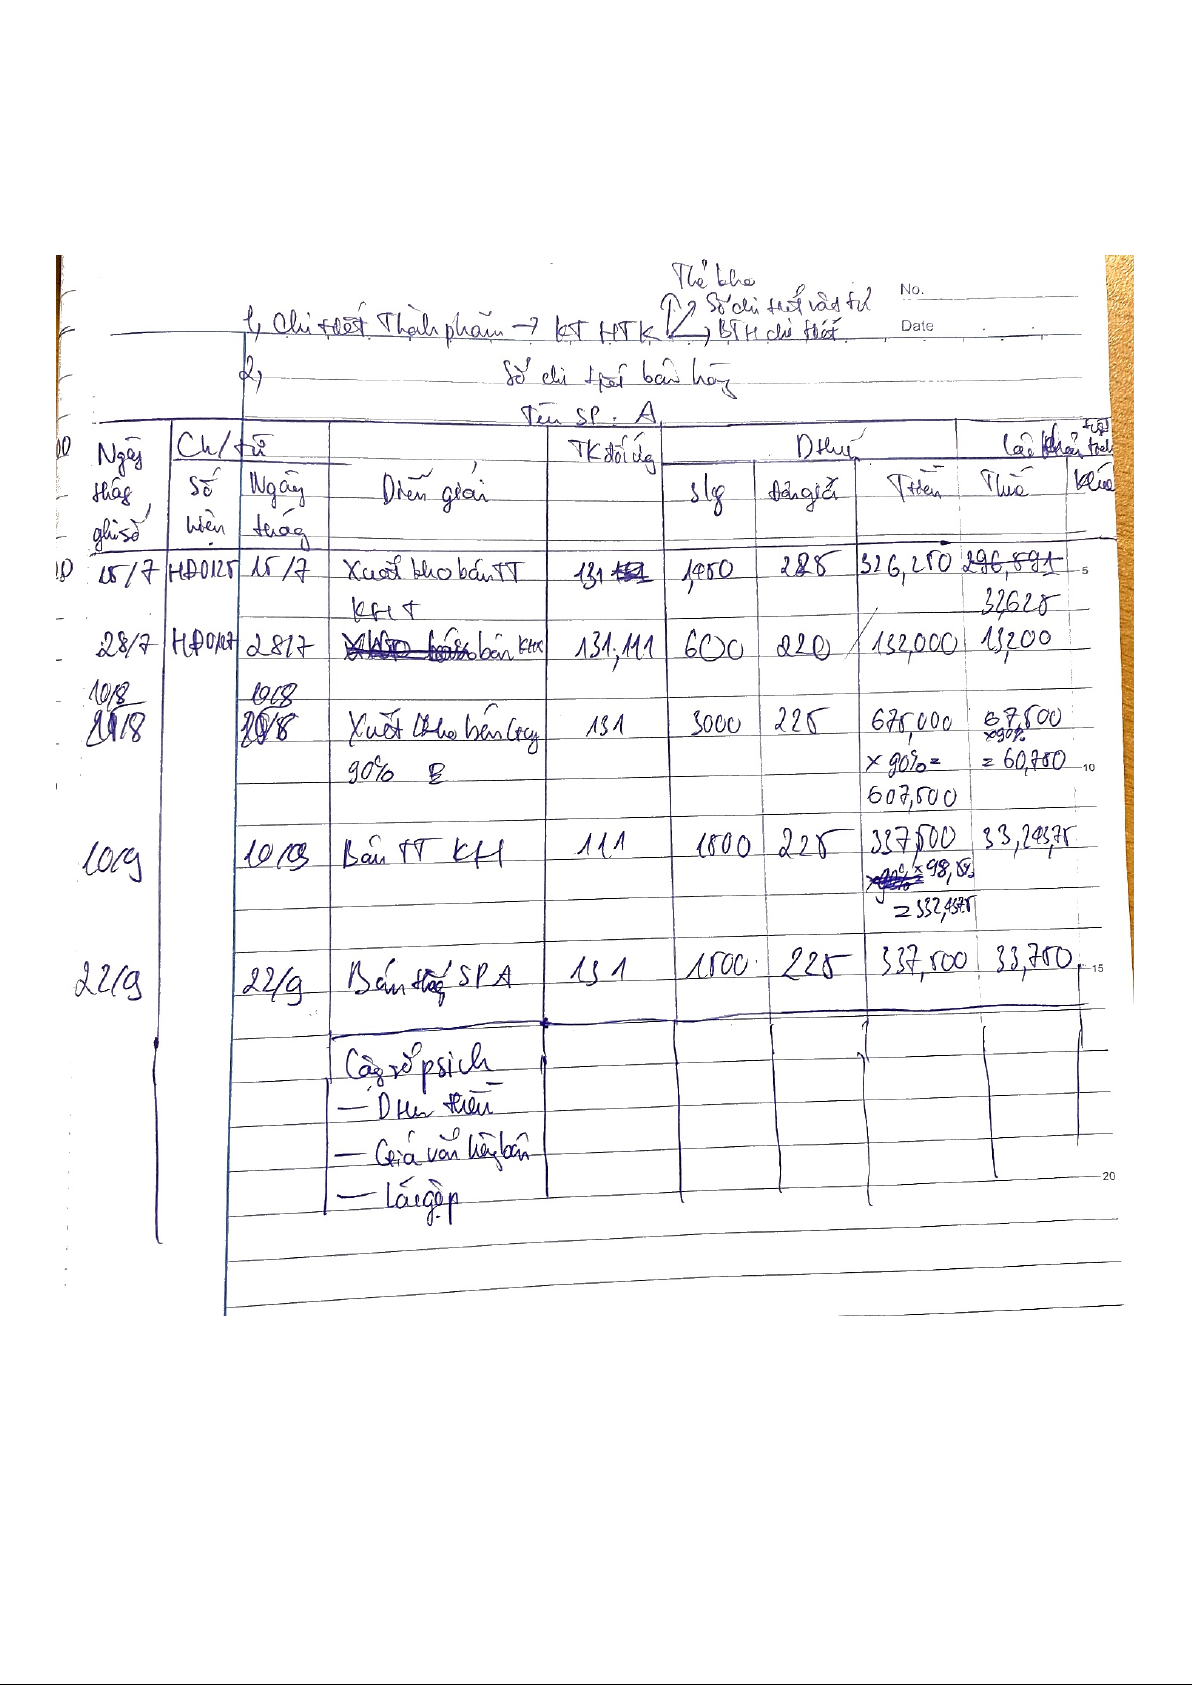 Thẻ kho
No.
Sổ chi tiết vật tư
1, Chi tiết Thành phẩm → KT HTK
BTH chi tiết
Date
2,
Sổ chi tiết bán hàng
Tên SP: A
Ngày tháng ghi sổ
Ch/từ
Diễn giải
TK đối ứng
Dthu
Các khoản
Số hiệu
Ngày tháng
Slg
Đơn giá
Ttiền
Thuế
Khác
15/7 HĐ0125 15/7 Xuất kho bán TT 131 1,450 225 326,250 296,591 5
KH T 32625
28/7 HĐ0127 28/7 bán KHX 131,111 600 220 132,000 13,200
10/8 10/8
Xuất kho bán 131 3000 225 675,000 67,500
x90%
90% x 90% = = 60,750 10
607,500
10/9 10/09 Bán TT KH 111 1500 225 337,500 33,24375
x 98,5%
= 332,4375
22/9 22/9 Bán SP A 131 1500 225 337,500 33,750 15
Cộng số psinh
— DThu thuần
— Giá vốn hàng bán
— Lãi gộp
20